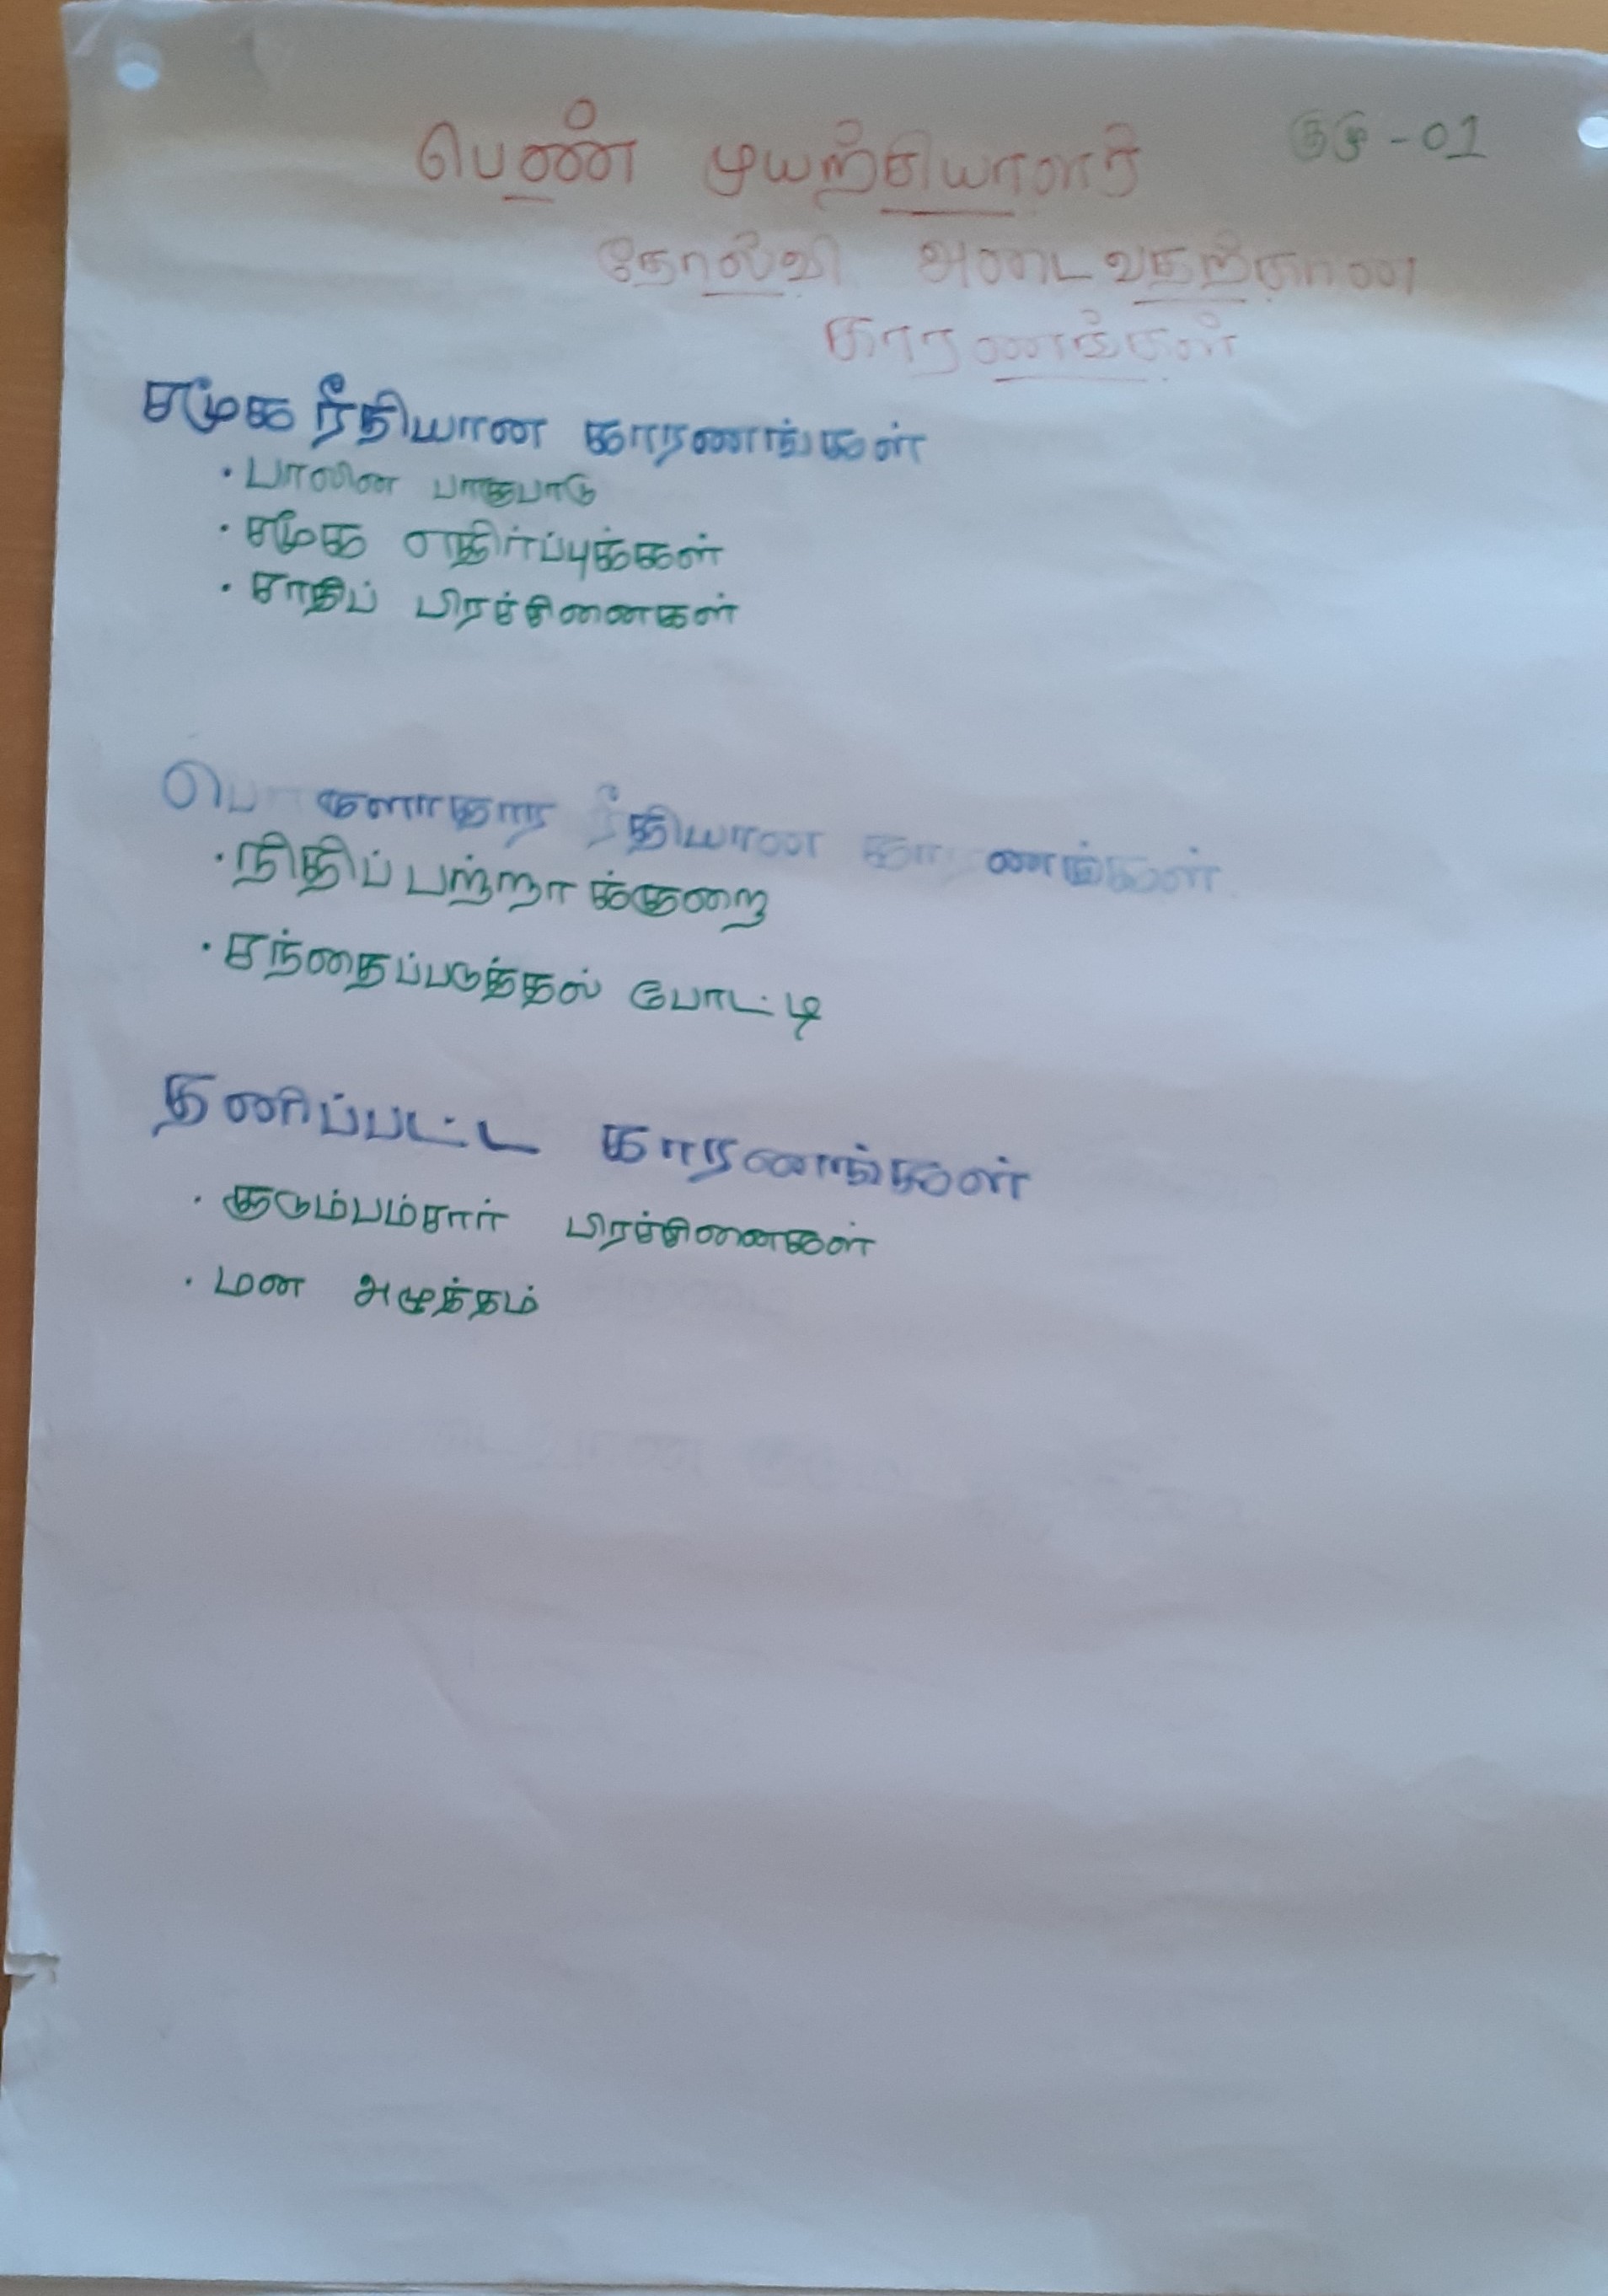 குழு - 01
பெண் முயற்சியாளர்
தோல்வி அடைவதற்கான
காரணங்கள்
சமூக ரீதியான காரணங்கள்
• பாலின பாகுபாடு
• சமூக எதிர்ப்புக்கள்
• சாதிப் பிரச்சினைகள்
பொருளாதார ரீதியான காரணங்கள்
• நிதிப் பற்றாக்குறை
• சந்தைப்படுத்தல் போட்டி
தனிப்பட்ட காரணங்கள்
• குடும்பம்சார் பிரச்சினைகள்
• மன அழுத்தம்